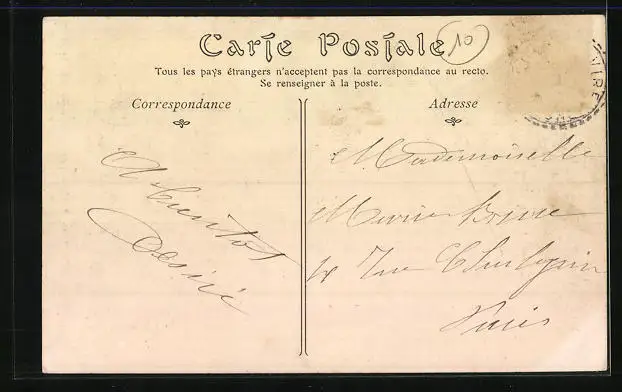 Carte Postale
10
Tous les pays étrangers n'acceptent pas la correspondance au recto.
Se renseigner à la poste.
Correspondance
Adresse
A bientot
Désiré
Mademoiselle
Marie
Rue
Paris